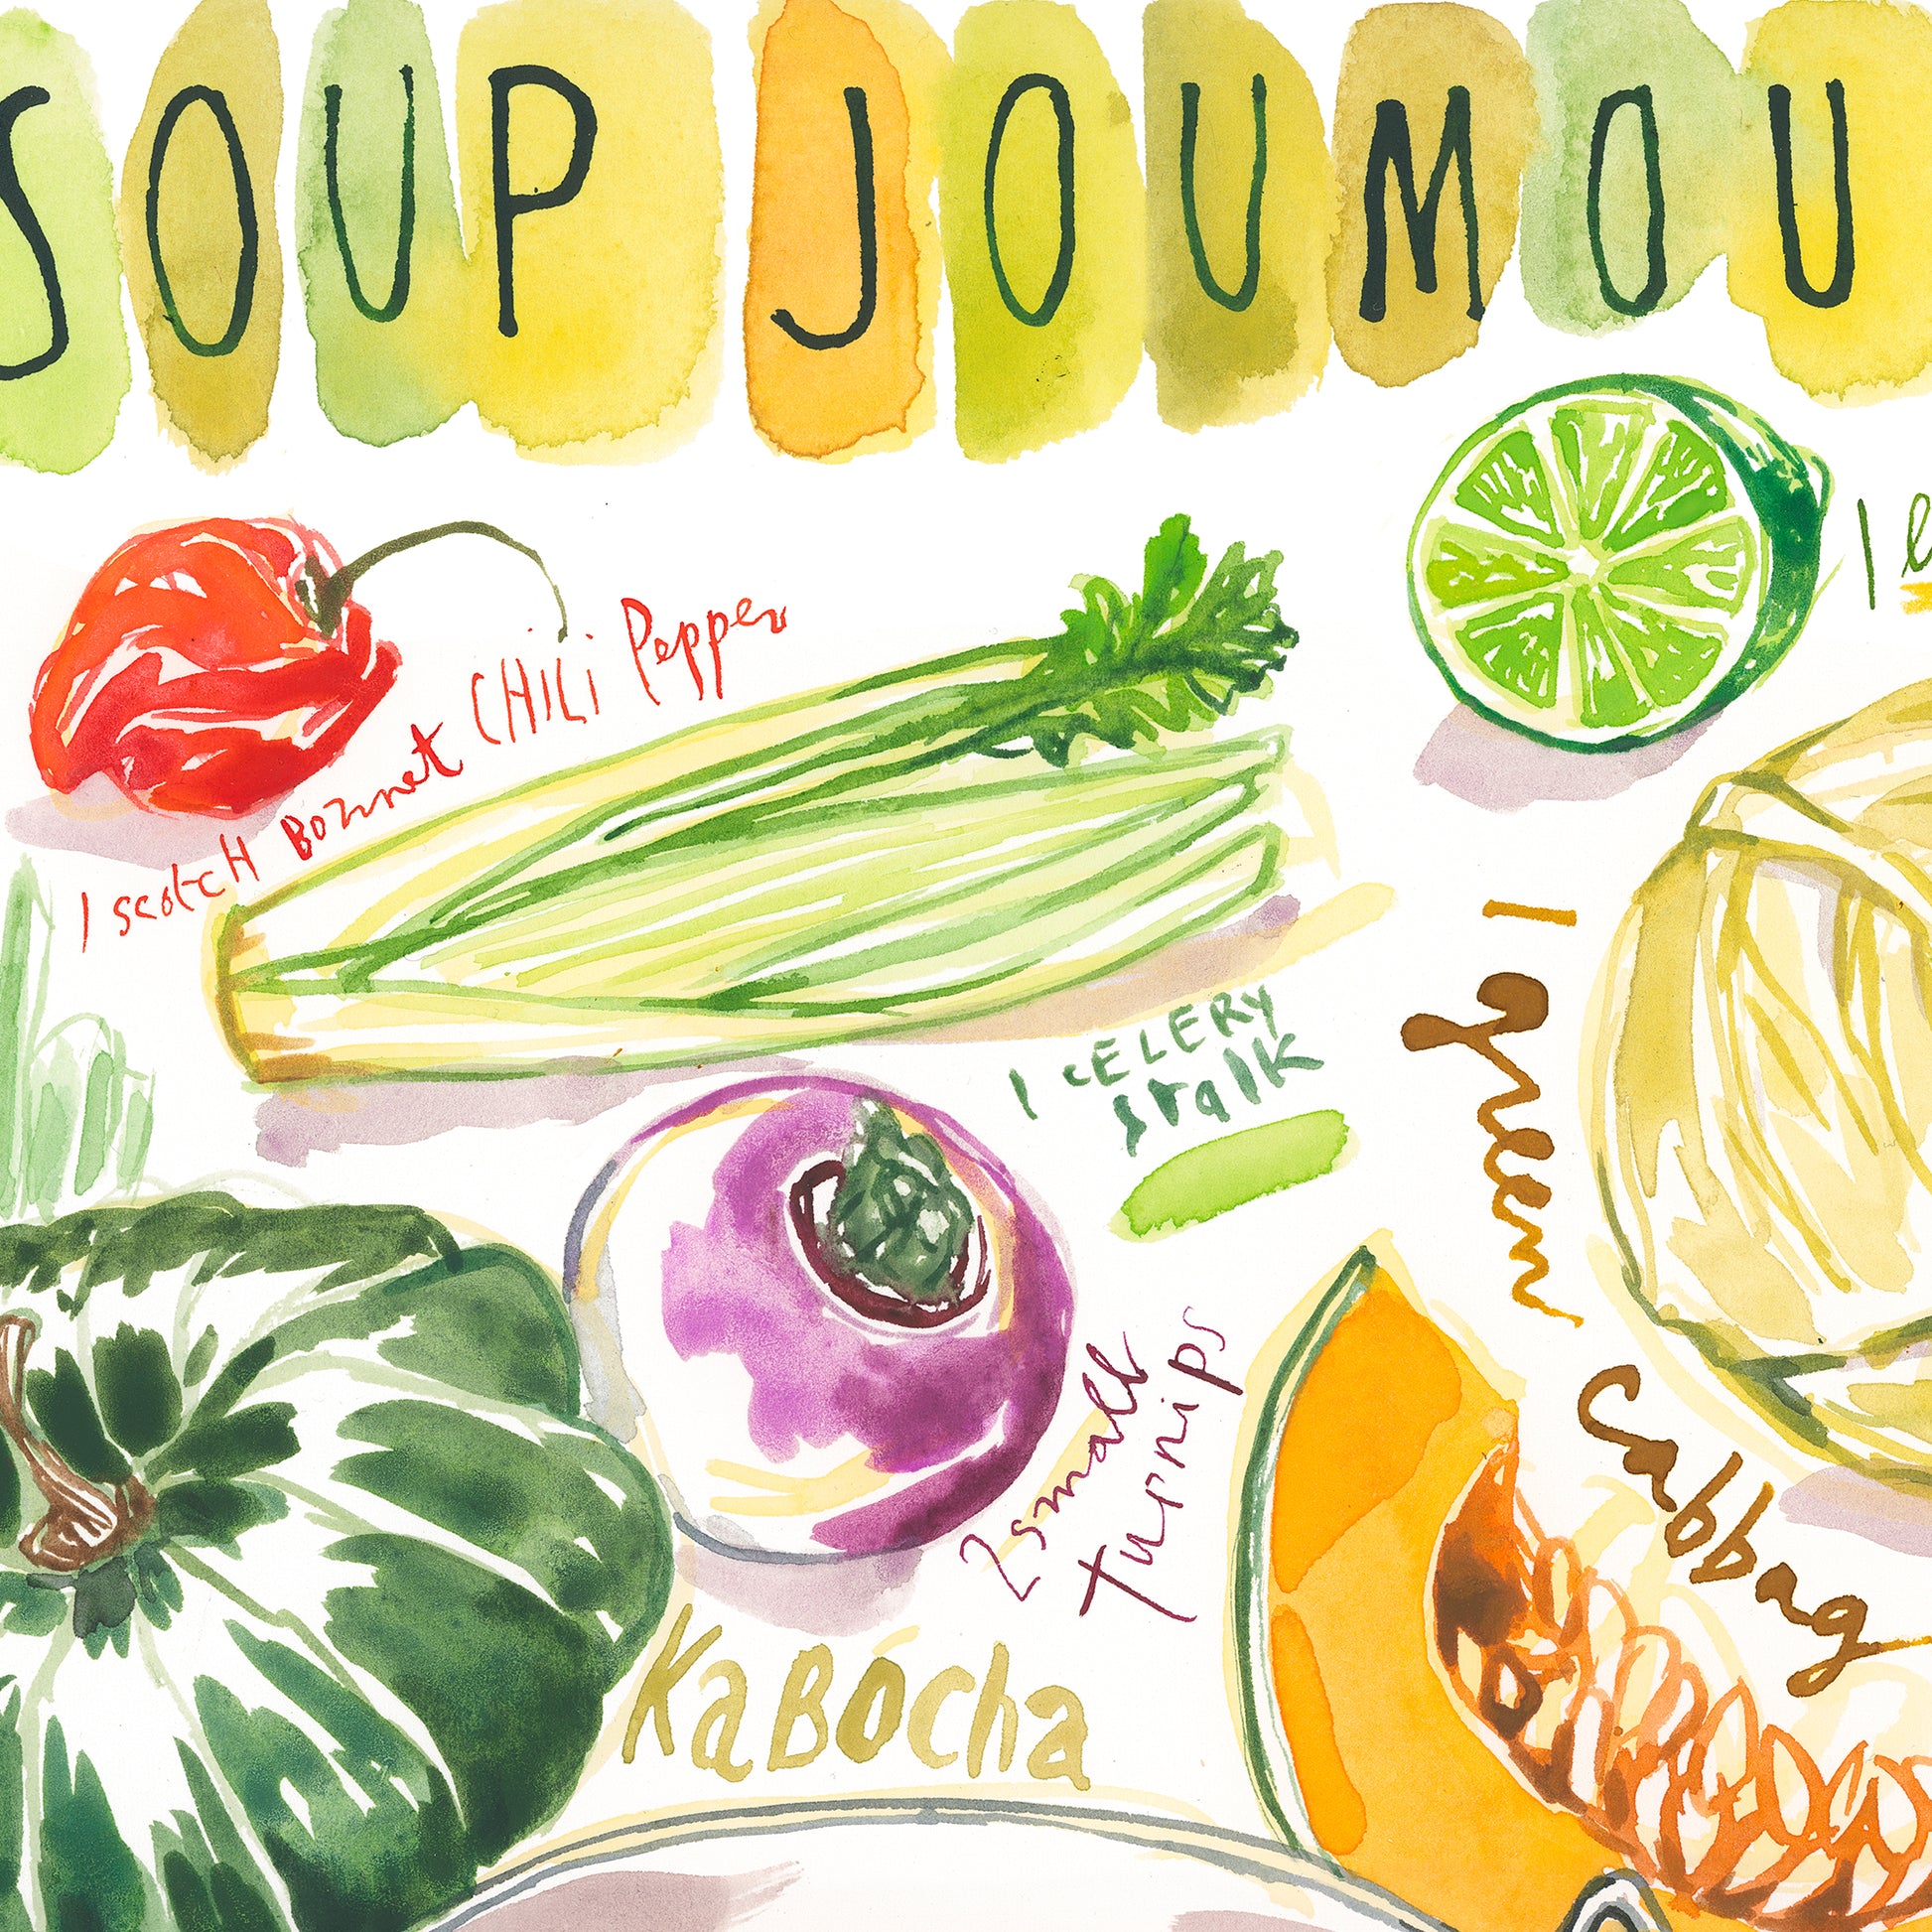 SOUP JOUMOU
1 scotcH Bonnet CHiLi Pepper
1
1 cELERY
stalk
1 green Cabbag
2 small
Turnips
KaBocha